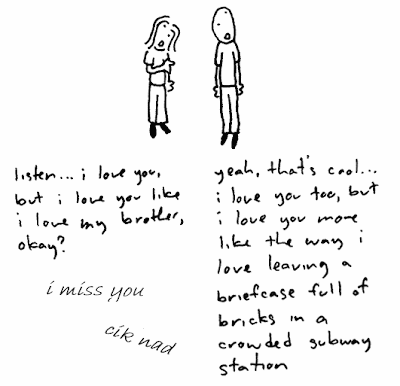 listen... i love you,
but i love you like
i love my brother,
okay?
yeah, that's cool...
i love you too, but
i love you more
like the way i
love leaving a
briefcase full of
bricks in a
crowded subway
station
i miss you
cik nad